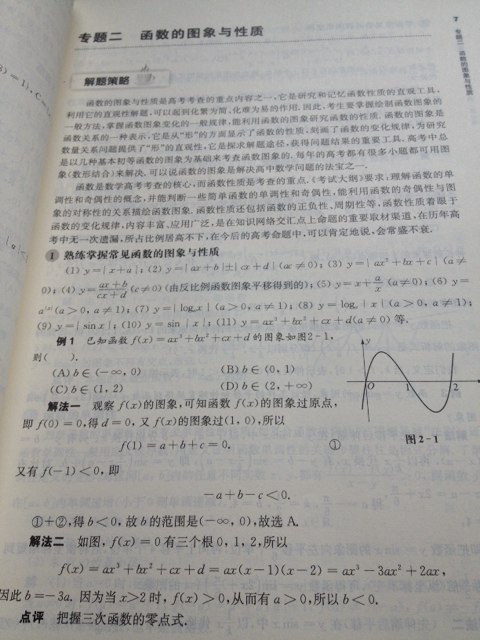 7
专题二 函数的图象与性质
专题二 函数的图象与性质
解题策略
函数的图象与性质是高考考查的重点内容之一,它是研究和记忆函数性质的直观工具,
利用它的直观性解题,可以起到化繁为简,化难为易的作用.因此,考生要掌握绘制函数图象的
一般方法,掌握函数图象变化的一般规律,能利用函数的图象研究函数的性质.函数的图象是
函数关系的一种表示,它是从“形”的方面显示了函数的性质,刻画了函数的变化规律,为研究
数量关系问题提供了“形”的直观性,它是探求解题途径,获得问题结果的重要工具.高考中总
是以几种基本初等函数的图象为基础来考查函数图象的.每年的高考都有很多小题都可用图
象(数形结合)来解决,可以说函数的图象是解决高中数学问题的法宝之一.
函数是数学高考考查的核心,而函数性质是考查的重点.《考试大纲》要求:理解函数的单
调性和奇偶性的概念,并能判断一些简单函数的单调性和奇偶性,能利用函数的奇偶性与图
象的对称性的关系描绘函数图象.函数性质还包括函数的正负性、周期性等,函数性质着眼于
函数的变化规律,内容丰富、应用广泛,是在知识网络交汇点上命题的重要取材渠道,在历年高
考中无一次遗漏,所占比例居高不下,在今后的高考命题中,可以肯定地说,会常盛不衰.
1 熟练掌握常见函数的图象与性质
(1) y=|x+a|; (2) y=|ax+b|±|cx+d|(ac≠0); (3) y=|ax²+bx+c|(a≠
0); (4) y=(ax+b)/(cx+d)(c≠0)(由反比例函数图象平移得到的); (5) y=x+a/x(a≠0); (6) y=
a^|x|(a>0, a≠1); (7) y=|logₐx|(a>0, a≠1); (8) y=logₐ|x|(a>0, a≠1);
(9) y=|sin x|; (10) y=sin|x|; (11) y=ax³+bx²+cx+d(a≠0) 等.
例1 已知函数 f(x)=ax³+bx²+cx+d 的图象如图2-1,
则( ).
(A) b∈(-∞, 0) (B) b∈(0, 1)
(C) b∈(1, 2) (D) b∈(2, +∞)
y
O 1 2 x
图2-1
解法一 观察 f(x)的图象,可知函数 f(x)的图象过原点,
即 f(0)=0,得 d=0,又 f(x)的图象过(1, 0),所以
f(1)=a+b+c=0, ①
又有 f(-1)<0,即
-a+b-c<0.
①+②,得 b<0,故 b 的范围是(-∞, 0),故选 A.
解法二 如图, f(x)=0 有三个根 0, 1, 2,所以
f(x)=ax³+bx²+cx+d=ax(x-1)(x-2)=ax³-3ax²+2ax,
因此 b=-3a.因为当 x>2 时, f(x)>0,从而有 a>0,所以 b<0.
点评 把握三次函数的零点式.